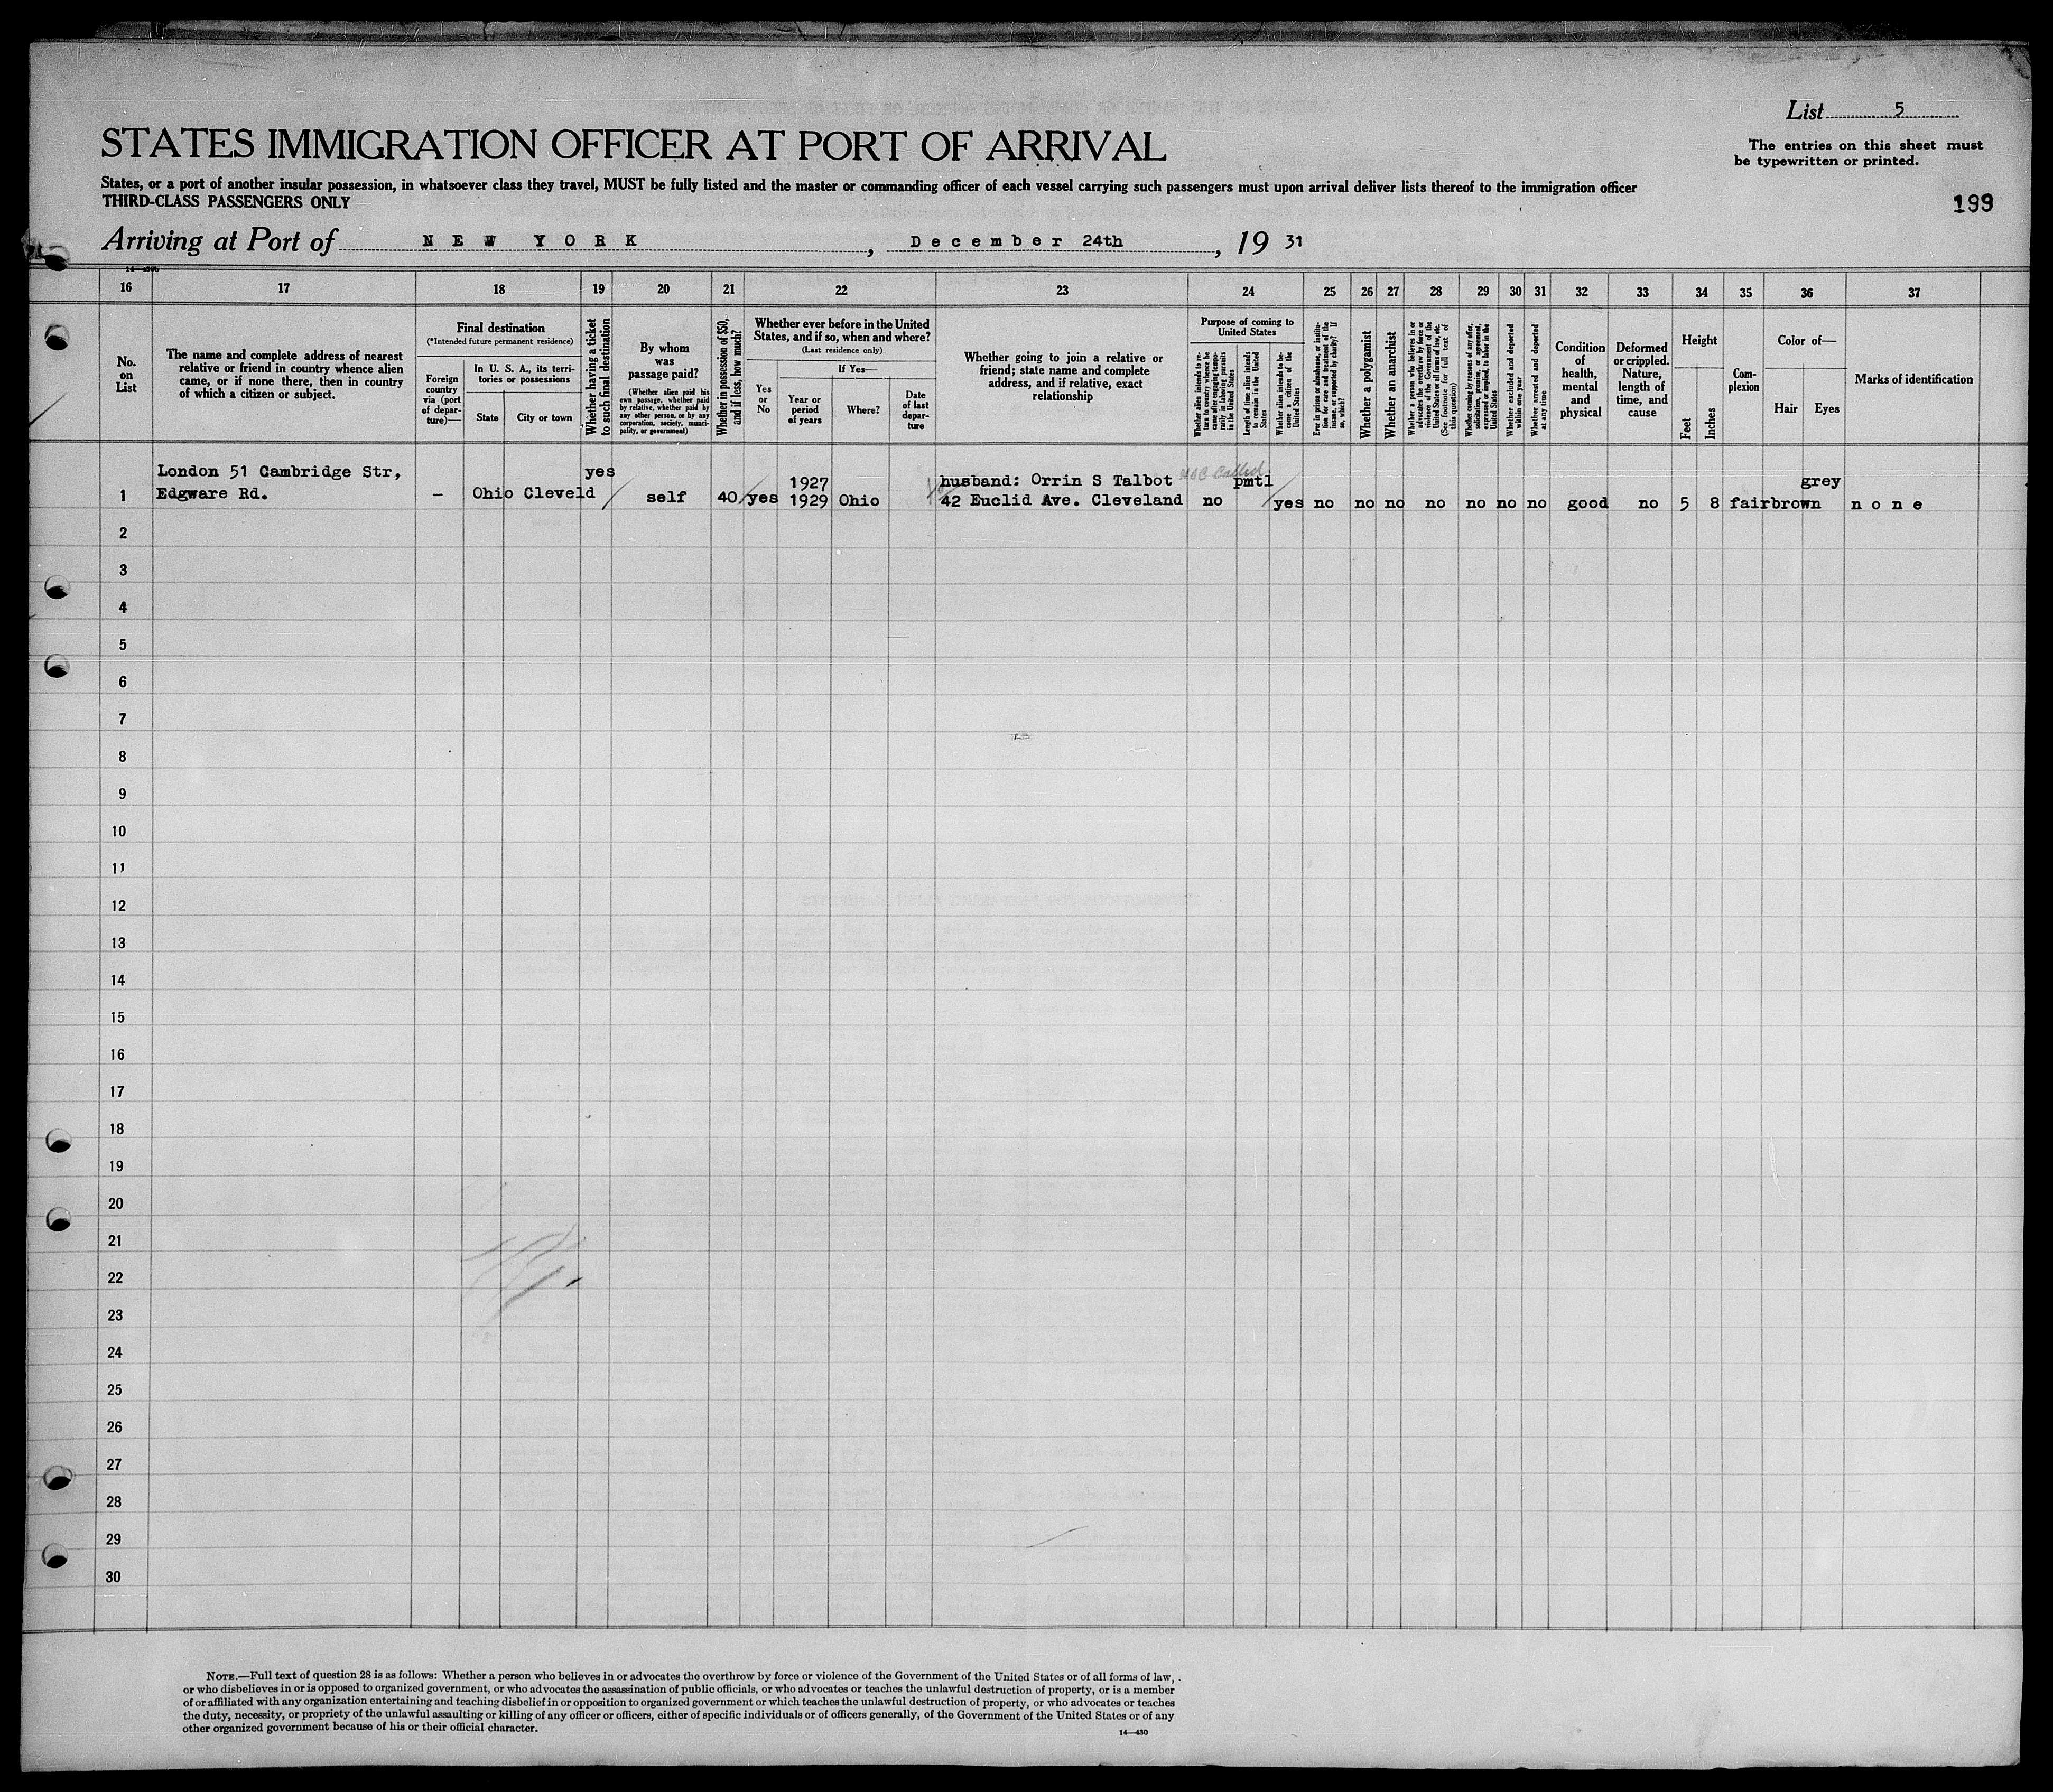 List 5
STATES IMMIGRATION OFFICER AT PORT OF ARRIVAL
The entries on this sheet must
be typewritten or printed.
States, or a port of another insular possession, in whatsoever class they travel, MUST be fully listed and the master or commanding officer of each vessel carrying such passengers must upon arrival deliver lists thereof to the immigration officer
THIRD-CLASS PASSENGERS ONLY
199
Arriving at Port of NEW YORK, December 24th, 19 31
16 17 18 19 20 21 22 23 24 25 26 27 28 29 30 31 32 33 34 35 36 37
No.
on
List
The name and complete address of nearest
relative or friend in country whence alien
came, or if none there, then in country
of which a citizen or subject.
Final destination
(*Intended future permanent residence)
Foreign
country
via (port
of depar-
ture)—
In U. S. A., its terri-
tories or possessions
State
City or town
Whether having a ticket
to such final destination
By whom
was
passage paid?
(Whether alien paid his
own passage, whether paid
by relative, whether paid by
any other person, or by any
corporation, society, munici-
pality, or government)
Whether in possession of $50,
and if less, how much?
Whether ever before in the United
States, and if so, when and where?
(Last residence only)
Yes
or
No
If Yes—
Year or
period
of years
Where?
Date
of last
depar-
ture
Whether going to join a relative or
friend; state name and complete
address, and if relative, exact
relationship
Purpose of coming to
United States
Whether alien intends to re-
turn to country whence he
came after engaging tempo-
rarily in laboring pursuits
in the United States
Length of time alien intends
to remain in the United
States
Whether alien intends to be-
come a citizen of the
United States
Ever in prison or almshouse, or institu-
tion for care and treatment of the
insane, or supported by charity? If
so, which?
Whether a polygamist
Whether an anarchist
Whether a person who believes in or
advocates the overthrow by force or
violence of the Government of the
United States or all forms of law, etc.
(See footnote for full text of
this question)
Whether coming by reasons of any offer,
solicitation, promise, or agreement,
expressed or implied, to labor in the
United States
Whether excluded and deported
within one year
Whether arrested and deported
at any time
Condition
of
health,
mental
and
physical
Deformed
or crippled.
Nature,
length of
time, and
cause
Height
Feet
Inches
Com-
plexion
Color of—
Hair
Eyes
Marks of identification
London 51 Cambridge Str, yes husband: Orrin S Talbot pmtl grey
1 Edgware Rd. – Ohio Cleveld self 40 yes 1927 1929 Ohio 42 Euclid Ave. Cleveland no yes no no no no no no no good no 5 8 fair brown none
2
3
4
5
6
7
8
9
10
11
12
13
14
15
16
17
18
19
20
21
22
23
24
25
26
27
28
29
30
NOTE.—Full text of question 28 is as follows: Whether a person who believes in or advocates the overthrow by force or violence of the Government of the United States or of all forms of law,
or who disbelieves in or is opposed to organized government, or who advocates the assassination of public officials, or who advocates or teaches the unlawful destruction of property, or is a member
of or affiliated with any organization entertaining and teaching disbelief in or opposition to organized government or which teaches the unlawful destruction of property, or who advocates or teaches
the duty, necessity, or propriety of the unlawful assaulting or killing of any officer or officers, either of specific individuals or of officers generally, of the Government of the United States or of any
other organized government because of his or their official character.
14—430